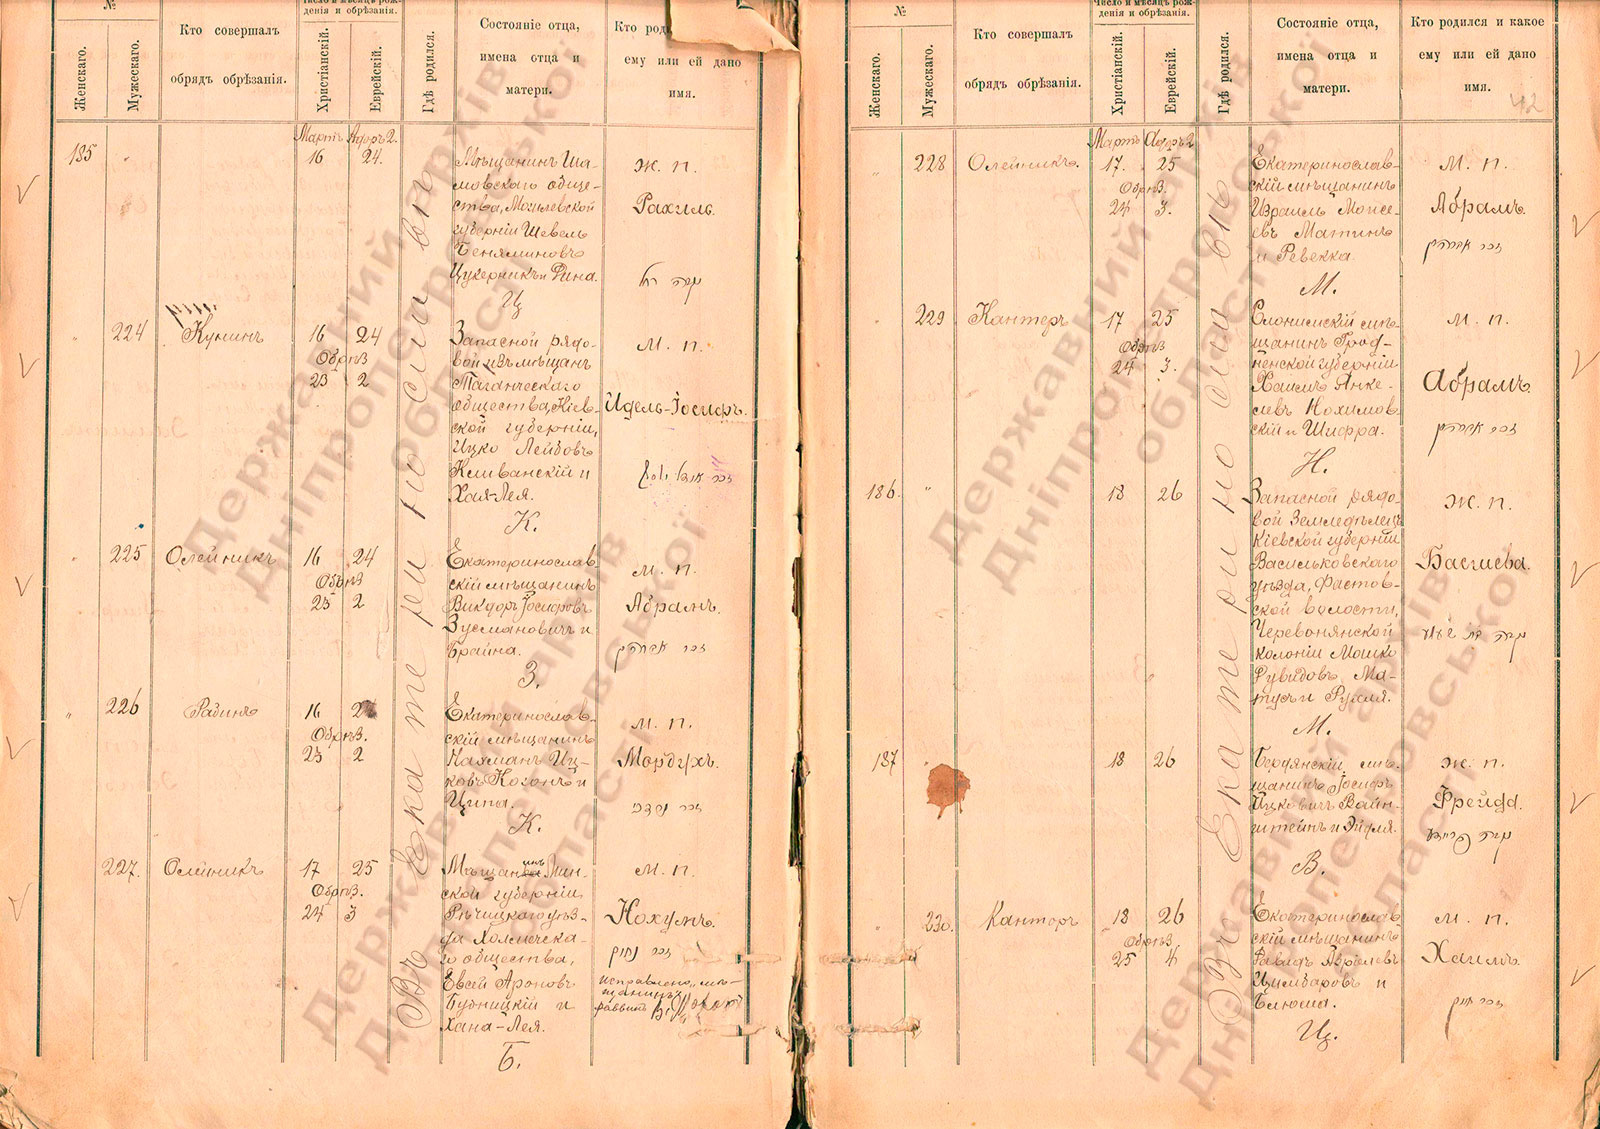 №
Женскаго.
Мужескаго.
Кто совершалъ
обрядъ обрѣзанія.
Число и мѣсяцъ рож-
денія и обрѣзанія.
Христіанскій.
Еврейскій.
Гдѣ родился.
Состояніе отца,
имена отца и
матери.
Кто
ему или ей дано
имя.
Мартъ Адаръ 2.
185 " 16 24.
Мѣщанинъ Ша-
мовскаго обще-
ства, Могилевской
губерніи Шевель
Беняминовъ
Цукерникъ и Рина.
Ц
Ж. п.
Рахиль.
" 224 Кунинъ 16 24
Обрѣз
23 2
Запасной рядо-
вой изъ мѣщанъ
Таганческаго
общества, Кіев-
ской губерніи,
Ицко Лейбовъ
Кливанскій и
Хая-Лея.
К.
М. п.
Йдель-Іосифъ.
" 225 Олейникъ 16 24
Обрѣз
23 2
Екатеринослав-
скій мѣщанинъ
Викдоръ Іосифовъ
Зусмановичъ и
Брайна.
З.
М. п.
Абрамъ.
זכר אברהם
" 226 Рабинъ 16
Обрѣз.
23 2
Екатеринослав-
скій мѣщанинъ
Калманъ Иц-
ковъ Коганъ и
Ципа.
К.
М. п.
Мордухъ.
זכר מרדכי
227. Олейникъ 17 25
Обрѣз.
24 3
Мѣщанинъ Мин-
ской губерніи
Рѣчицкаго уѣз-
да Холмечска-
го общества,
Евсей Ароновъ
Будницкій и
Хана-Лея.
Б.
М. п.
Нохумъ.
זכר נחום
исправлено "мѣ-
щанинъ"
раввинъ
Въ Екатеринославѣ
№
Женскаго.
Мужескаго.
Кто совершалъ
обрядъ обрѣзанія.
Число и мѣсяцъ рож-
денія и обрѣзанія.
Христіанскій.
Еврейскій.
Гдѣ родился.
Состояніе отца,
имена отца и
матери.
Кто родился и какое
ему или ей дано
имя.
42
Мартъ Адаръ 2
" 228 Олейникъ. 17. 25
Обрѣз.
24 3.
Екатеринослав-
скій мѣщанинъ
Израиль Мойсе-
евъ Матинъ
и Ревекка.
М.
М. п.
Абрамъ.
זכר אברהם
" 229 Кантеръ 17 25
Обрѣз
24 3.
Слонимскій мѣ-
щанинъ Грод-
ненской губерніи
Хаимъ Янке-
левъ Нохимов-
скій и Шифра.
Н.
М. п.
Абрамъ.
זכר אברהם
186. " 18 26
Запасной рядо-
вой Земледѣлецъ
Кіевской губерніи
Васильковскаго
уѣзда, Фастов-
ской волости,
Червонянской
колоніи Мошко
Рувидовъ Ма-
тусъ и Рухля.
М.
Ж. п.
Басшева.
187 18 26
Бердянскій мѣ-
щанинъ Іосифъ
Ицковичъ Вайн-
штейнъ и Эйдля.
В.
Ж. п.
Фрейда.
" 230. Канторъ 18 26
Обрѣз
25 4
Екатеринослав-
скій мѣщанинъ
Давидъ Аврумовъ
Цимбаровъ и
Блюма.
Ц.
М. п.
Хаимъ.
זכר חיים
Въ Екатеринославѣ
Державний архів
Дніпропетровської
області